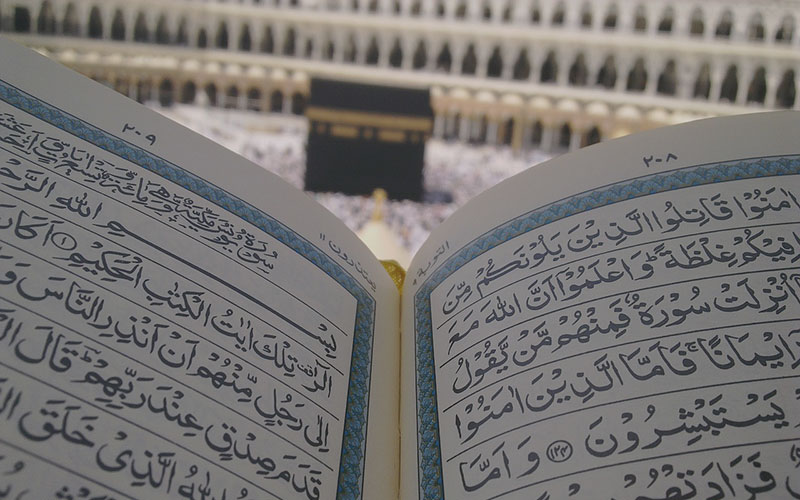 ٢٠٨
التوبة ٩
اٰمَنُوْا قَاتِلُوا الَّذِيْنَ يَلُوْنَكُمْ مِّنَ
فِيْكُمْ غِلْظَةً ؕ وَاعْلَمُوْۤا اَنَّ اللّٰهَ مَعَ
اُنْزِلَتْ سُوْرَةٌ فَمِنْهُمْ مَّنْ يَّقُوْلُ
اِيْمَانًا ۚ فَاَمَّا الَّذِيْنَ اٰمَنُوْا
يَسْتَبْشِرُوْنَ ﴿١٢٤﴾ وَ اَمَّا
فَزَادَتْهُمْ
٢٠٩
يعتذرون ١١
سُوْرَةُ يُوْنُسَ مَكِّيَّةٌ وَّهِيَ مِائَةٌ
بِسْمِ اللّٰهِ
الٓرٰ ۫ تِلْكَ اٰيٰتُ الْكِتٰبِ الْحَكِيْمِ ﴿١﴾ اَكَانَ
اِلٰى رَجُلٍ مِّنْهُمْ اَنْ اَنْذِرِ النَّاسَ وَ
قَدَمَ صِدْقٍ عِنْدَ رَبِّهِمْ ؕ قَالَ
اللّٰهُ الَّذِيْ خَلَقَ